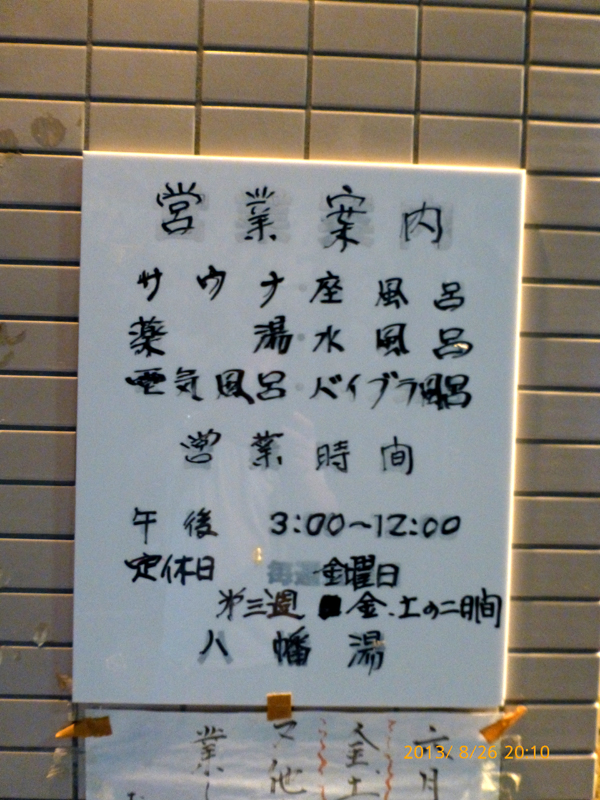 営業案内
サウナ・座風呂
薬湯・水風呂
電気風呂・バイブラ風呂
営業時間
午後 3:00～12:00
定休日 毎週金曜日
第三週 金、土の二日間
八幡湯
2013/8/26 20:10